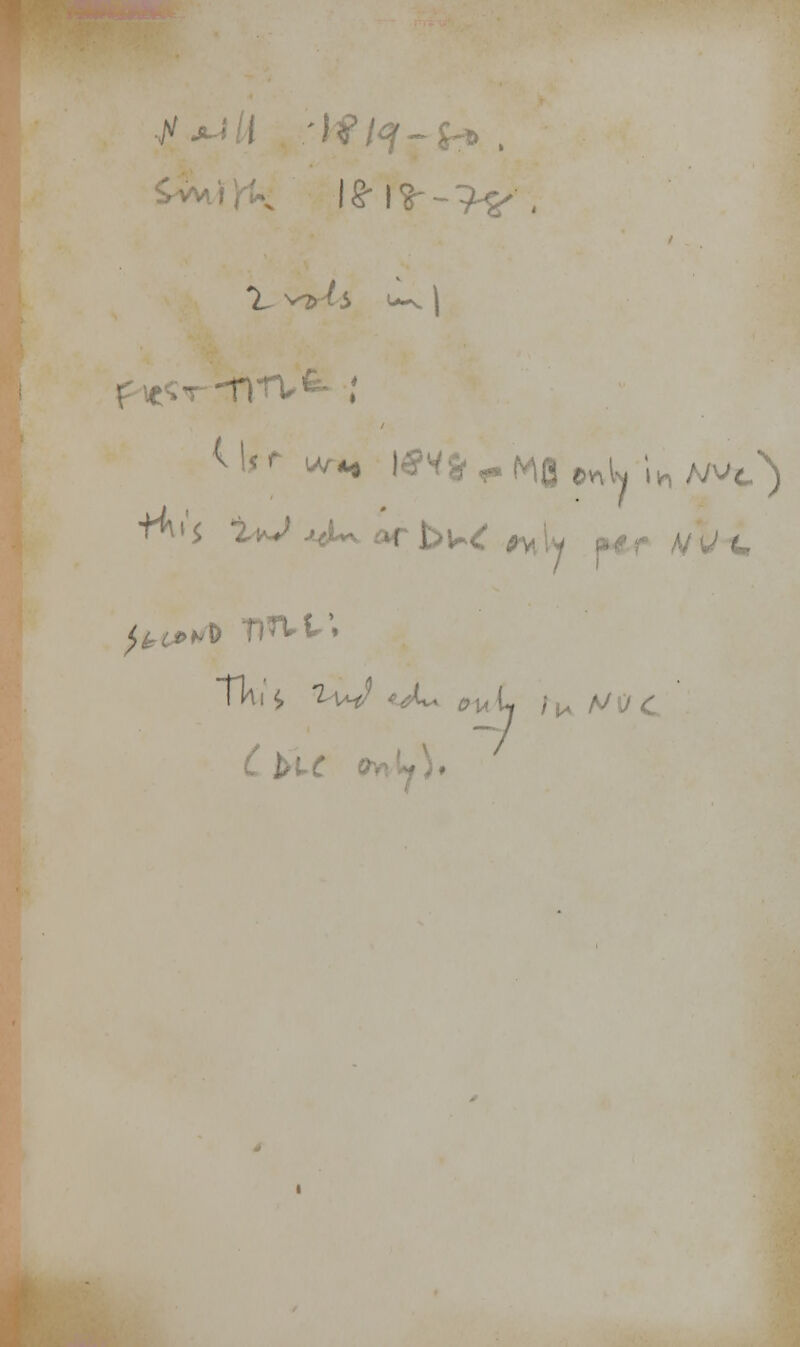 Neill 1819-80.
Smith 1818-78.
2 vols in 1
FIRST TITLE:
(1st was 1848 - MB only in NUC)
this 2nd edn at DLC only per NUC
SECOND TITLE:
This 2nd edn only in NUC
(DLC only).